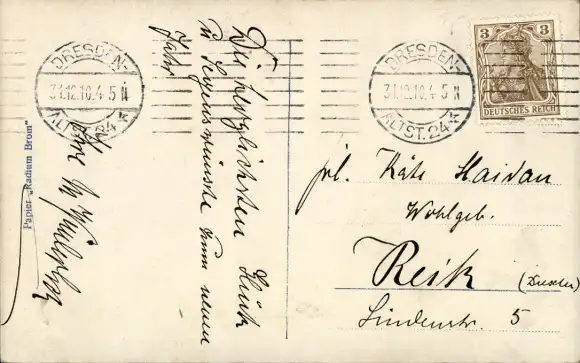 DRESDEN-
31.12.10.4-5N
ALTST. 24 K
DRESDEN-
31.12.10.4-5N
ALTST. 24 K
3 3
DEUTSCHES REICH
Papier „Radium Brom“
Die herzlichsten Glück
u. Segenswünsche zum neuen
Jahr
Frl. Käte Haidan
Wohlgeb.
Reik (Dresden)
Lindenstr. 5